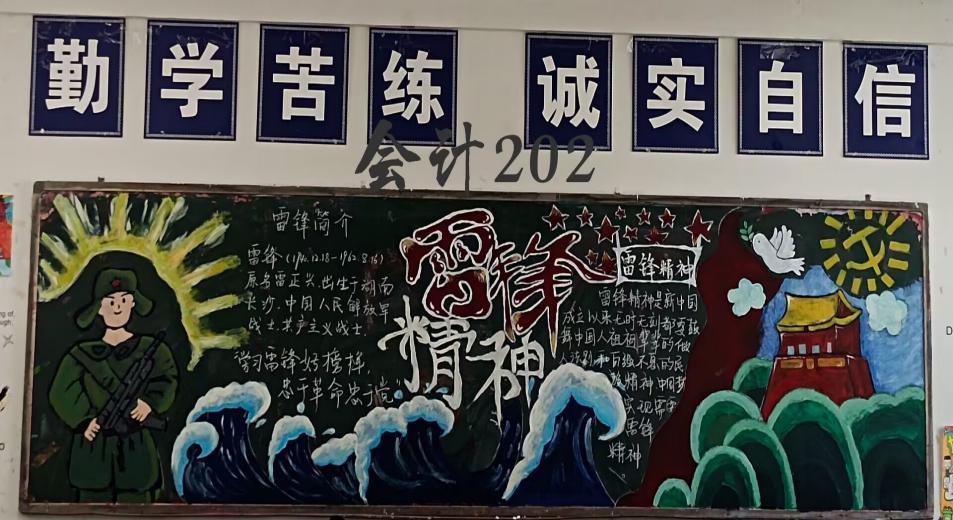 勤学苦练 诚实自信
会计202
雷锋简介
雷锋(1940.12.18-1962.8.15)
原名雷正兴,出生于湖南
长沙,中国人民解放军
战士,共产主义战士
学习雷锋好榜样,
忠于革命忠于党"
雷锋
精神
雷锋精神
雷锋精神是新中国
成立以来无时无刻都
舞中国人
精神中国
实现
雷锋
精神